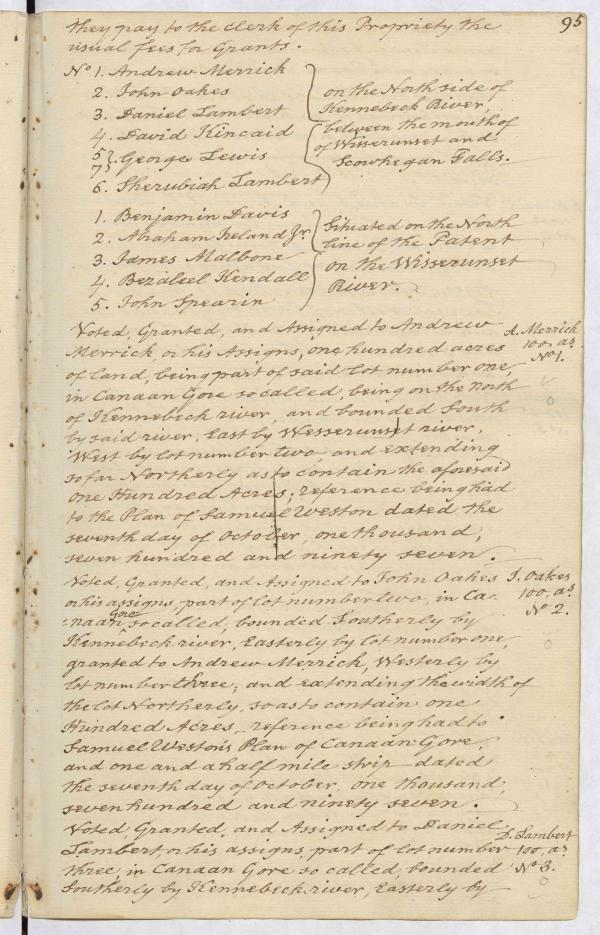 95
they pay to the Clerk of this Propriety the
usual fees for Grants.
No 1. Andrew Merrick
2. John Oakes
3. Daniel Lambert
4. David Kincaid
5 } George Lewis
7 }
6. Sherubiah Lambert
on the North side of
Kennebeck River,
between the mouth of
of Wisserunset and
Scowhegan Falls.
1. Benjamin Davis
2. Abraham Ireland Jr.
3. James Malbone
4. Bezaleel Kendall
5. John Spearin
Situated on the North
line of the Patent
on the Wisserunset
River.
Voted, Granted, and Assigned to Andrew
Merrick, or his Assigns, one hundred acres
of land, being part of said lot number one,
in Canaan Gore so called, being on the North
of Kennebeck river, and bounded South
by said river, East by Wesserunset river,
West by lot number two, and extending
so far Northerly as to contain the aforesaid
one Hundred Acres; reference being had
to the Plan of Samuel Weston dated the
seventh day of October, one thousand,
seven hundred and ninety seven.
A. Merrick
100. as.
No 1.
Voted, Granted, and Assigned to John Oakes
or his assigns, part of lot number two, in Ca-
Gore
=naan so called, bounded Southerly by
Kennebeck river, Easterly by lot number one,
granted to Andrew Merrick, Westerly by
lot number three; and extending the width of
the lot Northerly, so as to contain one
Hundred Acres, reference being had to
Samuel Weston's Plan of Canaan Gore,
and one and a half mile strip dated
the seventh day of October, one thousand,
seven hundred and ninety seven.
J. Oakes
100. as.
No 2.
Voted Granted, and Assigned to Daniel
Lambert or his assigns, part of lot number
three, in Canaan Gore so called, bounded
Southerly by Kennebeck river, Easterly by
D. Lambert
100. as.
No 3.